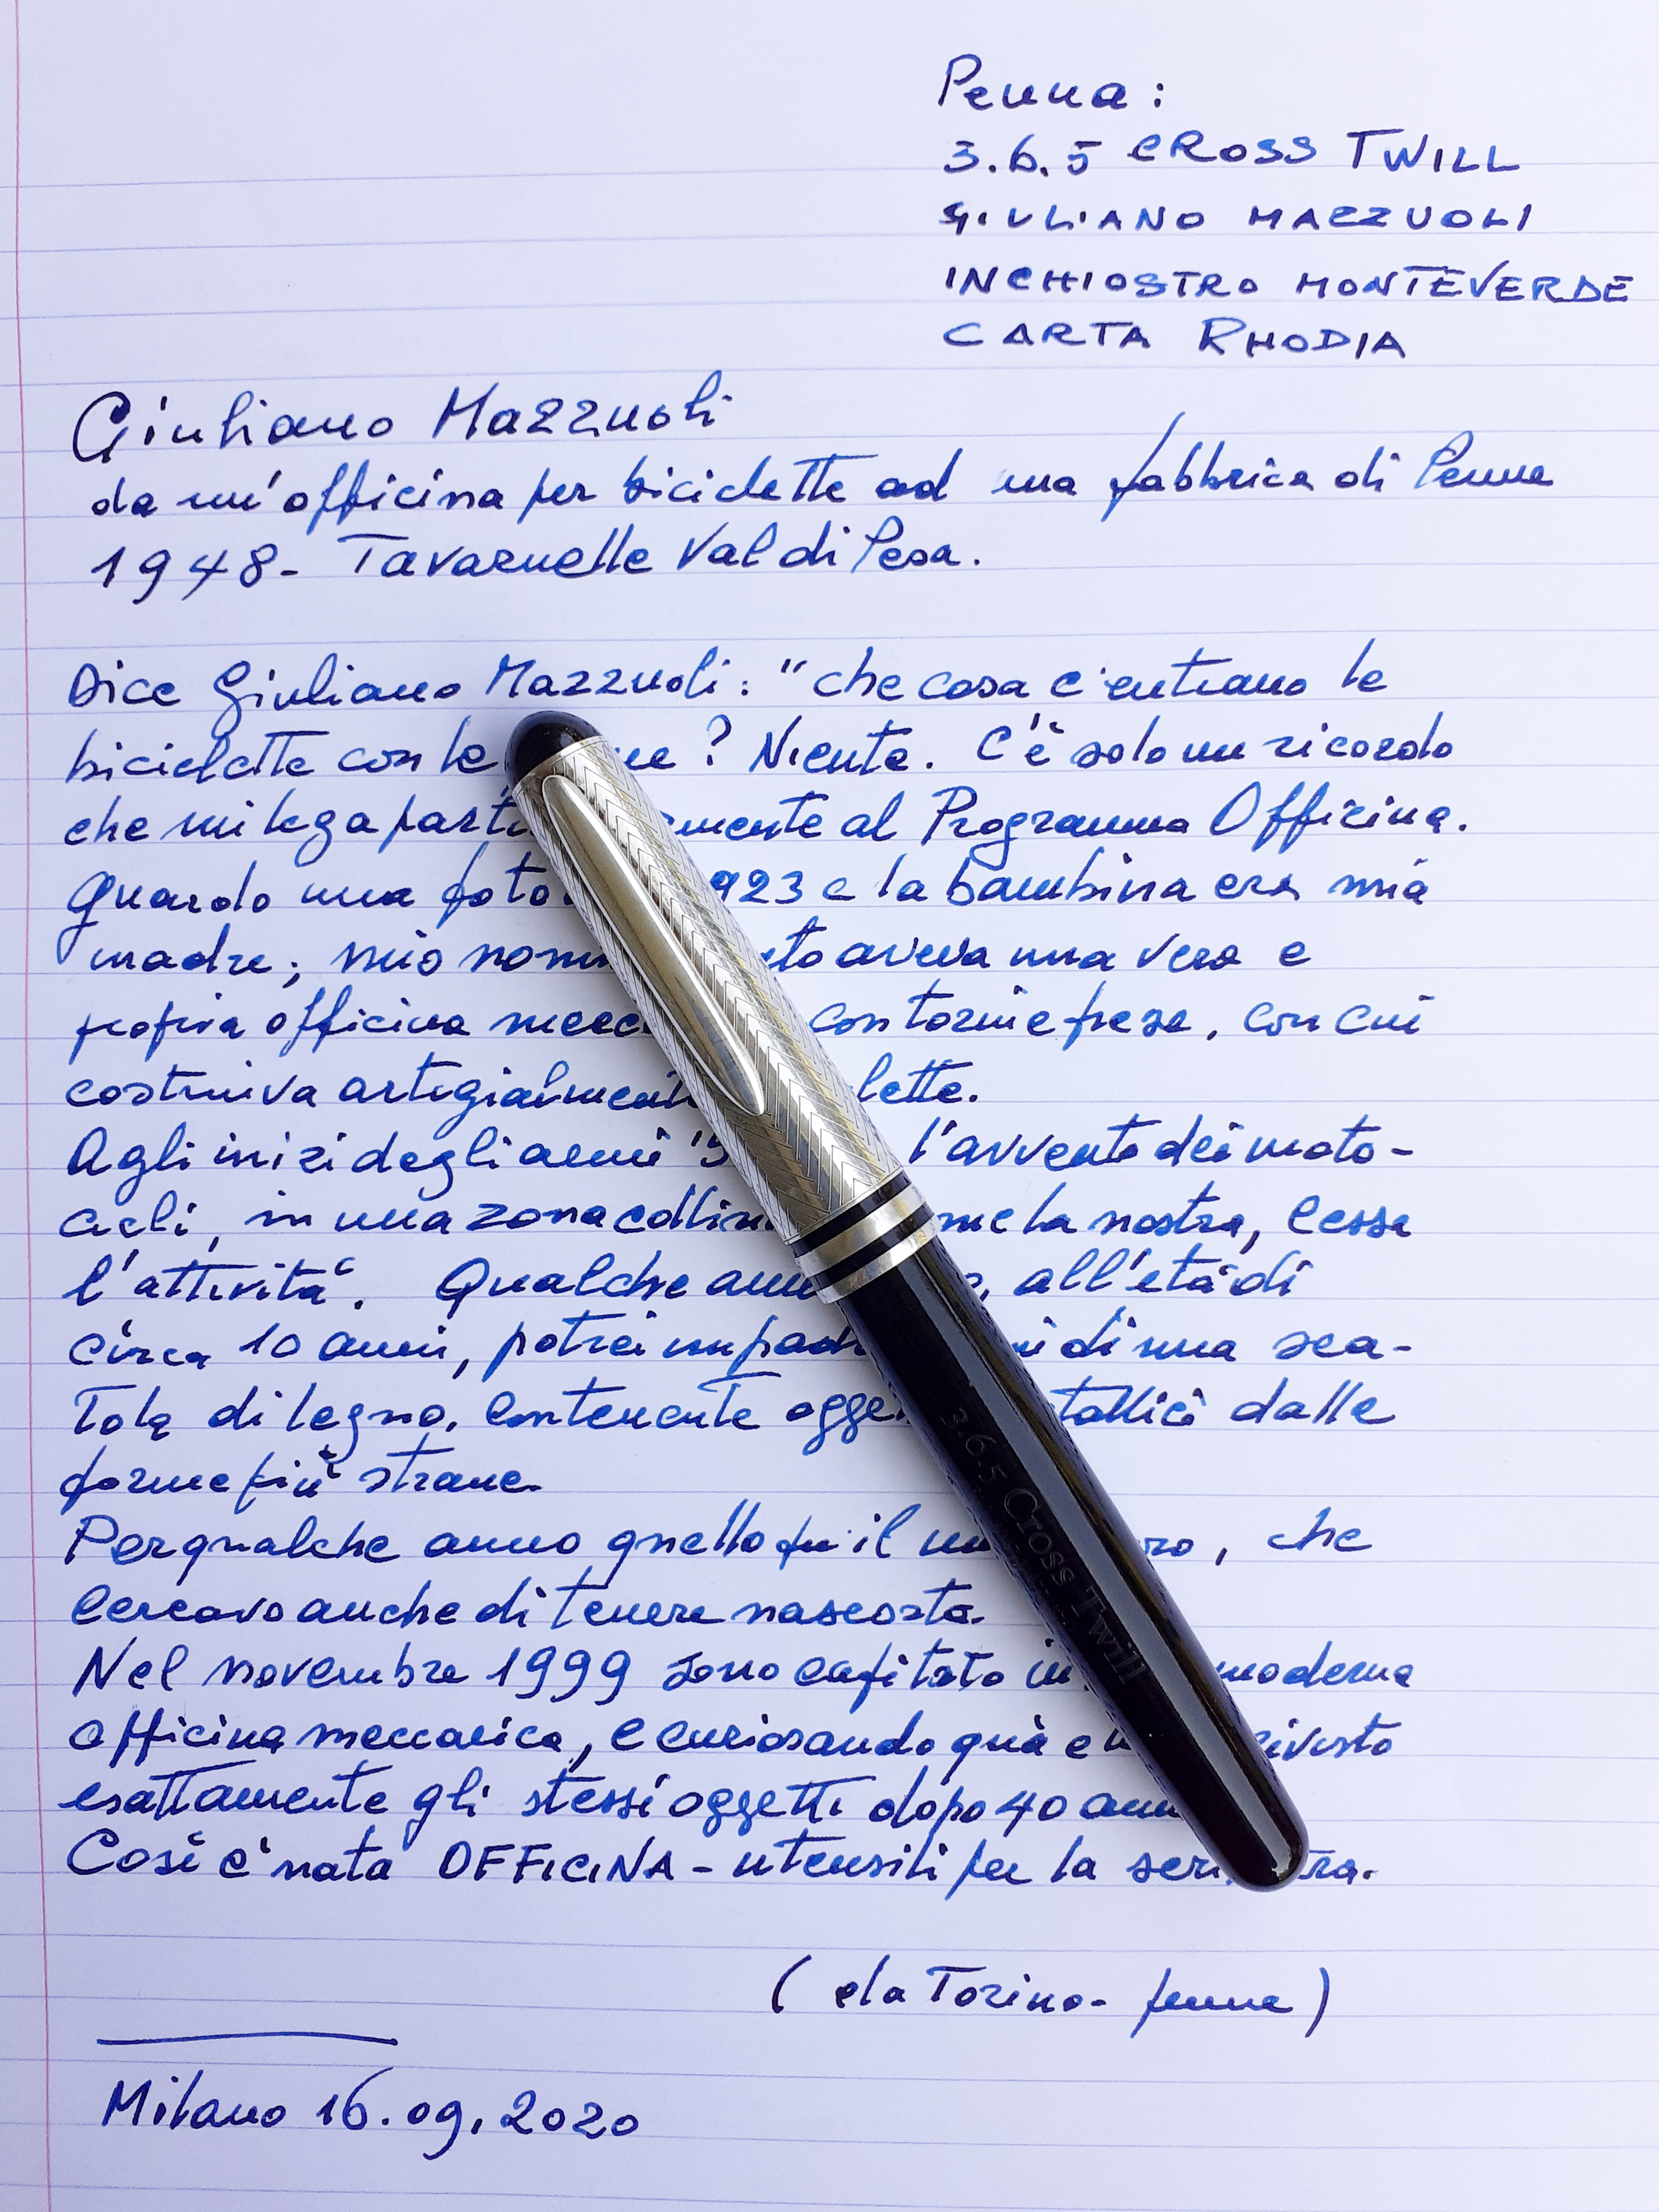 Penna:
3.6.5 CROSS TWILL
GIULIANO MAZZUOLI
INCHIOSTRO MONTEVERDE
CARTA RHODIA
Giuliano Mazzuoli
da un'officina per biciclette ad una fabbrica di Penne
1948- Tavarnelle Val di Pesa.
Dice Giuliano Mazzuoli: "che cosa c'entrano le
biciclette con le ? Niente. C'è solo un ricordo
che mi lega al Programma Officina.
Guardo una foto 923 e la bambina era mia
madre; mio aveva una vera e
propria officina con torni e frese, con cui
costruiva
Agli inizi degli anni '5 l'avvento dei moto-
cicli, in una zona la nostra, cessa
l'attività. Qualche all'età di
circa 10 anni, potrei di una sca-
tola di legno, contenente dalle
forme più strane.
Per qualche anno quello fu il che
cercavo anche di tenere nascosta.
Nel novembre 1999 sono capitato in moderna
officina meccanica, e curiosando quà e rivisto
esattamente gli stessi oggetti dopo 40
Così c'nata OFFICINA - utensili per la
(da Torino- penne)
Milano 16.09.2020
3.6.5 Cross Twill